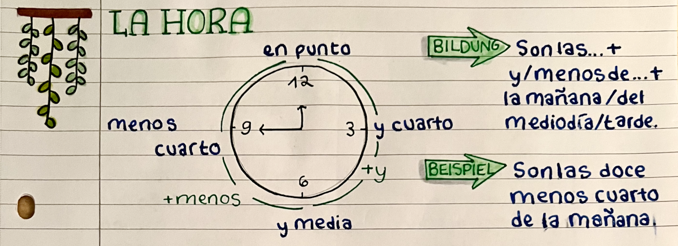 LA HORA
en punto
12
menos
cuarto
9
3
y cuarto
+y
6
+menos
y media
BILDUNG
Son las...+
y/menos de...+
la mañana/del
mediodía/tarde.
BEISPIEL
Son las doce
menos cuarto
de la mañana.